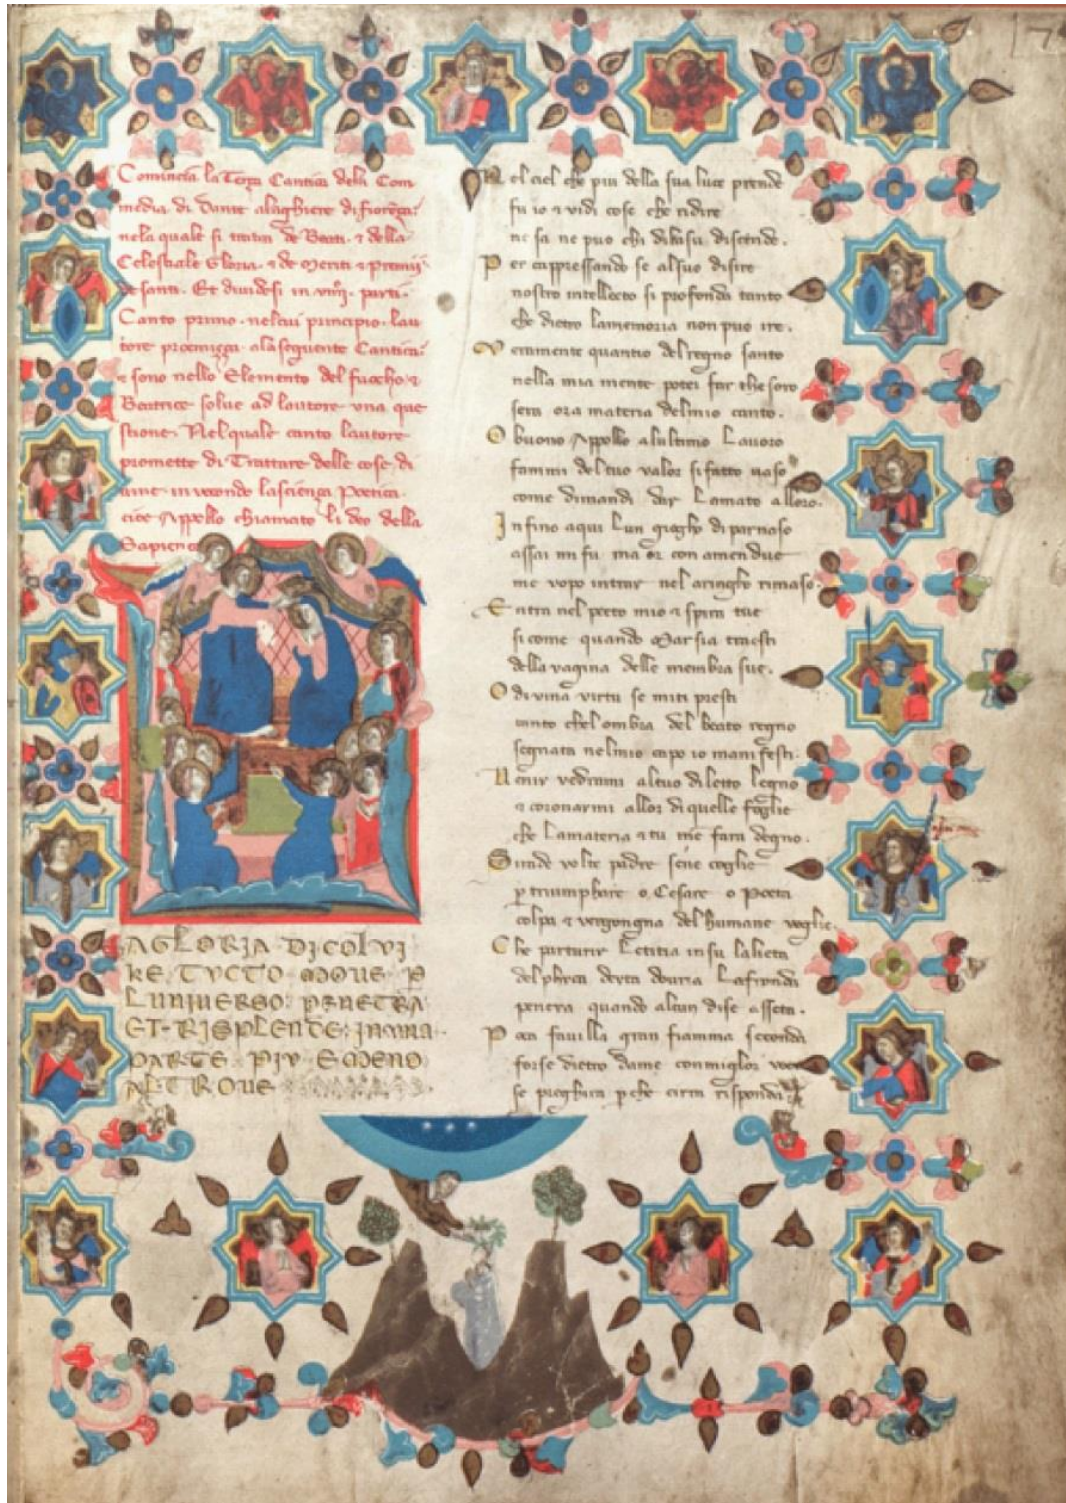 Comincia la Terça Cantica dela Com
media di Dante alaghiere di fiorẽça:
nela quale si tratta de Beati · & della
Celestiale Gloria · & de meriti & premii
de santi · Et dividesi in viiij · parti ·
Canto primo · nelcui principio · lau
tore proemiça · ala sequente Cantica:
& sono nello Elemento del fuocho · &
Beatrice solve ad lautore una que
stione · Nelquale canto lautore
promette di Trattare delle cose di
vine · invocando lascienҫa Poetica ·
cioe Appollo chiamato li deo della
Sapiença
A GLORIA DI COLVI
KE TVCTO MOVE P
LUNIUERSO PENETRA
ET RISPLENDE IN UNA
PARTE PIV E MENO
ALTROUE
Nel ciel che piu della sua luce prende
fu io & vidi cose che ridire
ne sa ne puo chi dilasu discende ·
Per cappressando se alsuo disire
nostro intellecto si profonda tanto
che dietro lamemoria non puo ire ·
Veramente quantio del regno santo
nella mia mente potei far thesoro
sera ora materia delmio canto ·
O buono Appollo alultimo Lavoro
fammi deltuo valor sifatto vaso
come dimandi dar Lamato alloro ·
Infino aqui Lun giogho di parnaso
assai mi fu ma or con amendue
me vopo intrar nel aringho rimaso ·
Entra nel pecto mio & spira tue
si come quando Marsia traesti
della vagina delle membra sue ·
O divina virtu se miti presti
tanto chel ombra del beato regno
segnata nelmio capo io manifesti ·
Venir vedrami altuo dilecto Legno
& coronarmi allor di quelle foglie
che Lamateria & tu me fara degno ·
Si rade volte padre sene coglie
p triumphare o Cesare o Poeta
colpa & vergongna del humane voglie
Che parturir Letitia insu lalieta
delphica deita dovria Lafronda
peneia quando alcun dise asseta ·
Poca favilla gran fiamma seconda
forse dietro dame conmiglor voci
se preghera p che cirra risponda